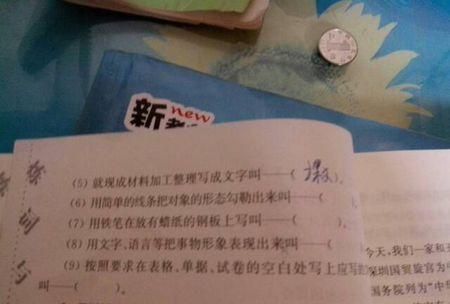 新 new
(5) 就现成材料加工整理写成文字叫——( )。
(6) 用简单的线条把对象的形态勾勒出来叫——( )
(7) 用铁笔在放有蜡纸的钢板上写叫——( )。
(8) 用文字、语言等把事物形象表现出来叫——(
(9) 按照要求在表格、单据、试卷的空白处写上应写的
叫——( )。
词
与
今天,我们一家和
深圳国贸旋宫为中
国务院列为“中